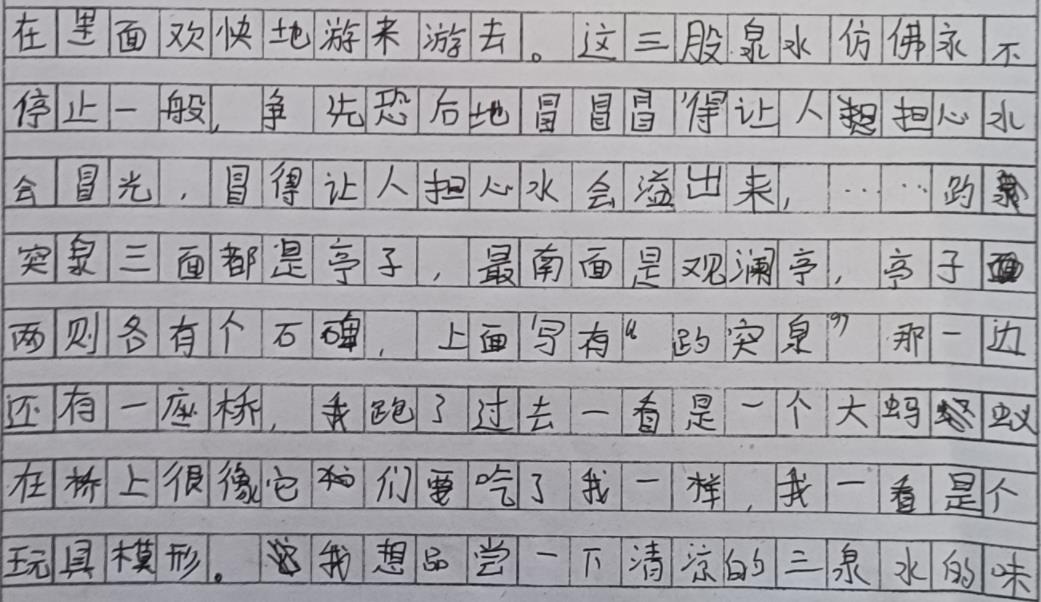 在里面欢快地游来游去。这三股泉水仿佛永不
停止一般,争先恐后地冒冒冒得让人担心水
会冒光,冒得让人担心水会溢出来,……趵
突泉三面都是亭子,最南面是观澜亭,亭子
两则各有个石碑,上面写有“趵突泉”那一边
还有一座桥,我跑了过去一看是一个大蚂蚁
在桥上很像它们要吃了我一样,我一看是个
玩具模形。我想品尝一下清凉的三泉水的味